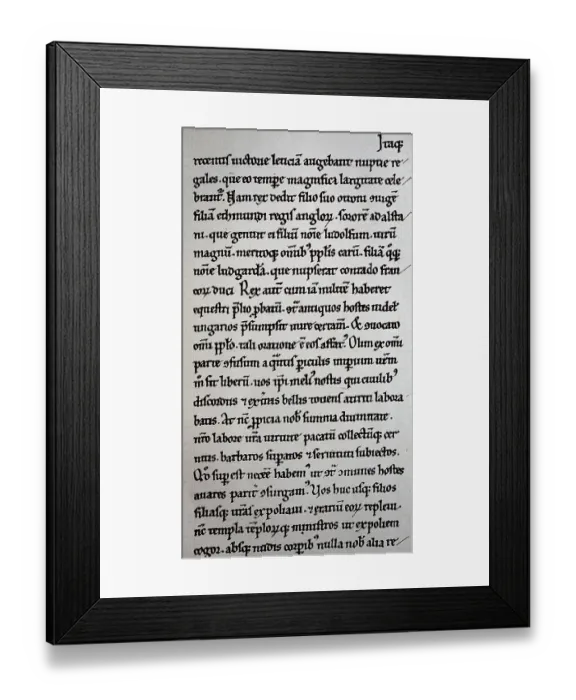 Itaq̃
recentis uictorie leticiã augebant nuptie re
gales. que eo tempe magnifica largitate cele
brant᷑. Nam rex dedit filio suo ottoni ꝯiugẽ
filiã ethmundi regis angloꝝ. sororẽ adalsta
ni. que genuit ei filiũ noĩe ludolfum. uirũ
magnũ. meritoq̃ omĩbꝰ pp̃lis carũ. filiã q̃q̃
noĩe ludgardã. que nupserat conrado fran
coꝝ duci. Rex aut̃ cum iã militẽ haberet
equestri p̃lio ꝓbatũ. ꝯt̃ antiquos hostes uidel᷑
ungarios p̃sumpsit inire certam̃. Et ꝯuocato
om̃i pp̃lo. tali oratione ẽ eos affat᷑. Olim ex om̃i
parte ꝯfusum a q̃ntis piculis imperium ur̃m
m̊ sit liberũ. uos ip̃i meliꝰ nostis qui ciuilibꝰ
discordiis ⁊ ext̃nis bellis totiens attriti labora
batis. At nc̃ ꝓpicia nob̃ summa diuinitate.
nr̃o labore ur̃a uirtute pacatũ collectũq̃ cer
nitis. barbaros supatos ⁊ seruituti subiectos.
Qꝺ̃ sup est necẽe habemꝰ ut ꝯt̃ ꝯmunes hostes
auares parit̃ ꝯsurgamꝰ. Vos huc usq̃ filios
filiasq̃ ur̃as expoliaui. ⁊ erariũ eoꝝ repleui.
nc̃ templa tẽploꝝq̃ ministros ut expoliem
cogor. absq̃ nudis corpibꝰ nulla nob̃ alia re